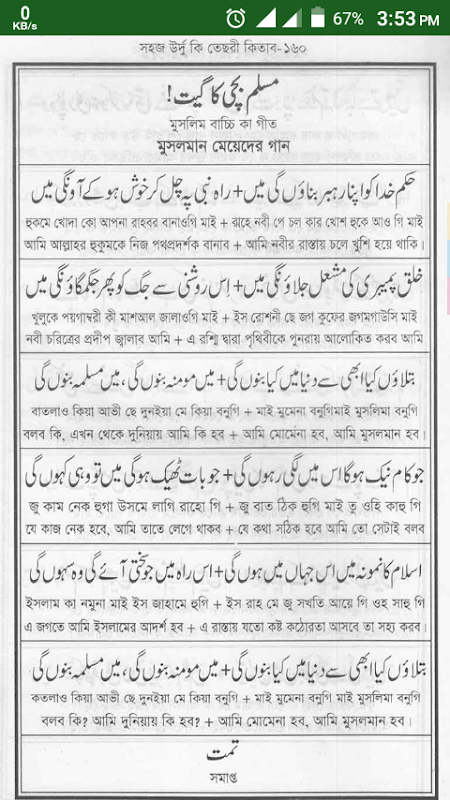 0
KB/s
67%
3:53 PM
সহজ উর্দু কি তেছরী কিতাব-১৬০
مسلم بچی کا گیت!
মুসলিম বাচ্চি কা গীত
মুসলমান মেয়েদের গান
حکم خدا کو اپنا رہبر بناؤں گی میں + راہ نبی پہ چل کر خوش ہو کے آونگی میں
হুকমে খোদা কো আপনা রাহবর বানাওগি মাই + রাহে নবী পে চল কার খোশ হুকে আও গি মাই
আমি আল্লাহর হুকুমকে নিজ পথপ্রদর্শক বানাব + আমি নবীর রাস্তায় চলে খুশি হয়ে থাকি।
خلق پیمبری کی مشعل جلاؤنگی میں + اس روشنی سے جگ کو پھر جگمگاؤنگی میں
খুলুকে পয়গাম্বরী কী মাশআল জালাওগি মাই + ইস রোশনী ছে জগ কুফের জগমগাউসি মাই
নবী চরিত্রের প্রদীপ জ্বালার আমি + এ রশ্মি দ্বারা পৃথিবীকে পুনরায় আলোকিত করব আমি
بتلاؤں کیا ابھی سے دنیا میں کیا بنوں گی + میں مومنہ بنوں گی، میں مسلمہ بنوں گی
বাতলাও কিয়া আভী ছে দুনইয়া মে কিয়া বনুগি + মাই মুমেনা বনুগিমাই মুসলিমা বনুগি
বলব কি, এখন থেকে দুনিয়ায় আমি কি হব + আমি মোমেনা হব, আমি মুসলমান হব।
جو کام نیک ہوگا اس میں لگی رہوں گی + جو بات ٹھیک ہوگی میں تو وہی کہوں گی
জু কাম নেক হুগা উসমে লাগি রাহো গি + জু বাত ঠিক হুগি মাই তু ওহি কাহু গি
যে কাজ নেক হবে, আমি তাতে লেগে থাকব + যে কথা সঠিক হবে আমি তো সেটাই বলব
اسلام کا نمونہ میں اس جہاں میں ہوں گی + اس راہ میں جو سختی آئے گی وہ سہوں گی
ইসলাম কা নমুনা মাই ইস জাহামে হুগি + ইস রাহ মে জু সখতি আয়ে গি ওহ সাহু গি
এ জগতে আমি ইসলামের আদর্শ হব + এ রাস্তায় যতো কষ্ট কঠোরতা আসবে তা সহ্য করব।
بتلاؤں کیا ابھی سے دنیا میں کیا بنوں گی + میں مومنہ بنوں گی، میں مسلمہ بنوں گی
কতলাও কিয়া আভী ছে দুনইয়া মে কিয়া বনুগি + মাই মুমেনা বনুগি মাই মুসলিমা বনুগি
বলব কি? আমি দুনিয়ায় কি হব? + আমি মোমেনা হব, আমি মুসলমান হব।
تمت
সমাপ্ত